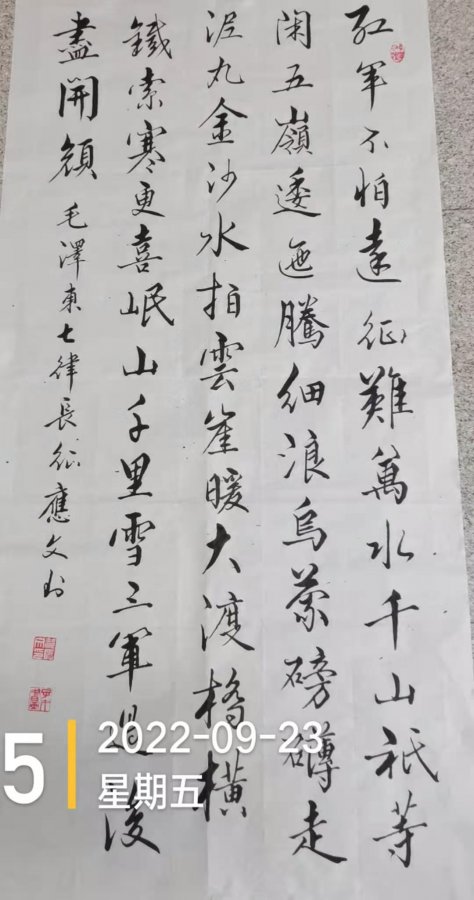 红军不怕远征难萬水千山祇等
闲五嶺逶迤腾细浪烏蒙磅礴走
泥丸金沙水拍雲崖暖大渡橋横
鐵索寒更喜岷山千里雪三軍过後
盡開顔 毛澤東七律長征應文书
5
2022-09-23
星期五